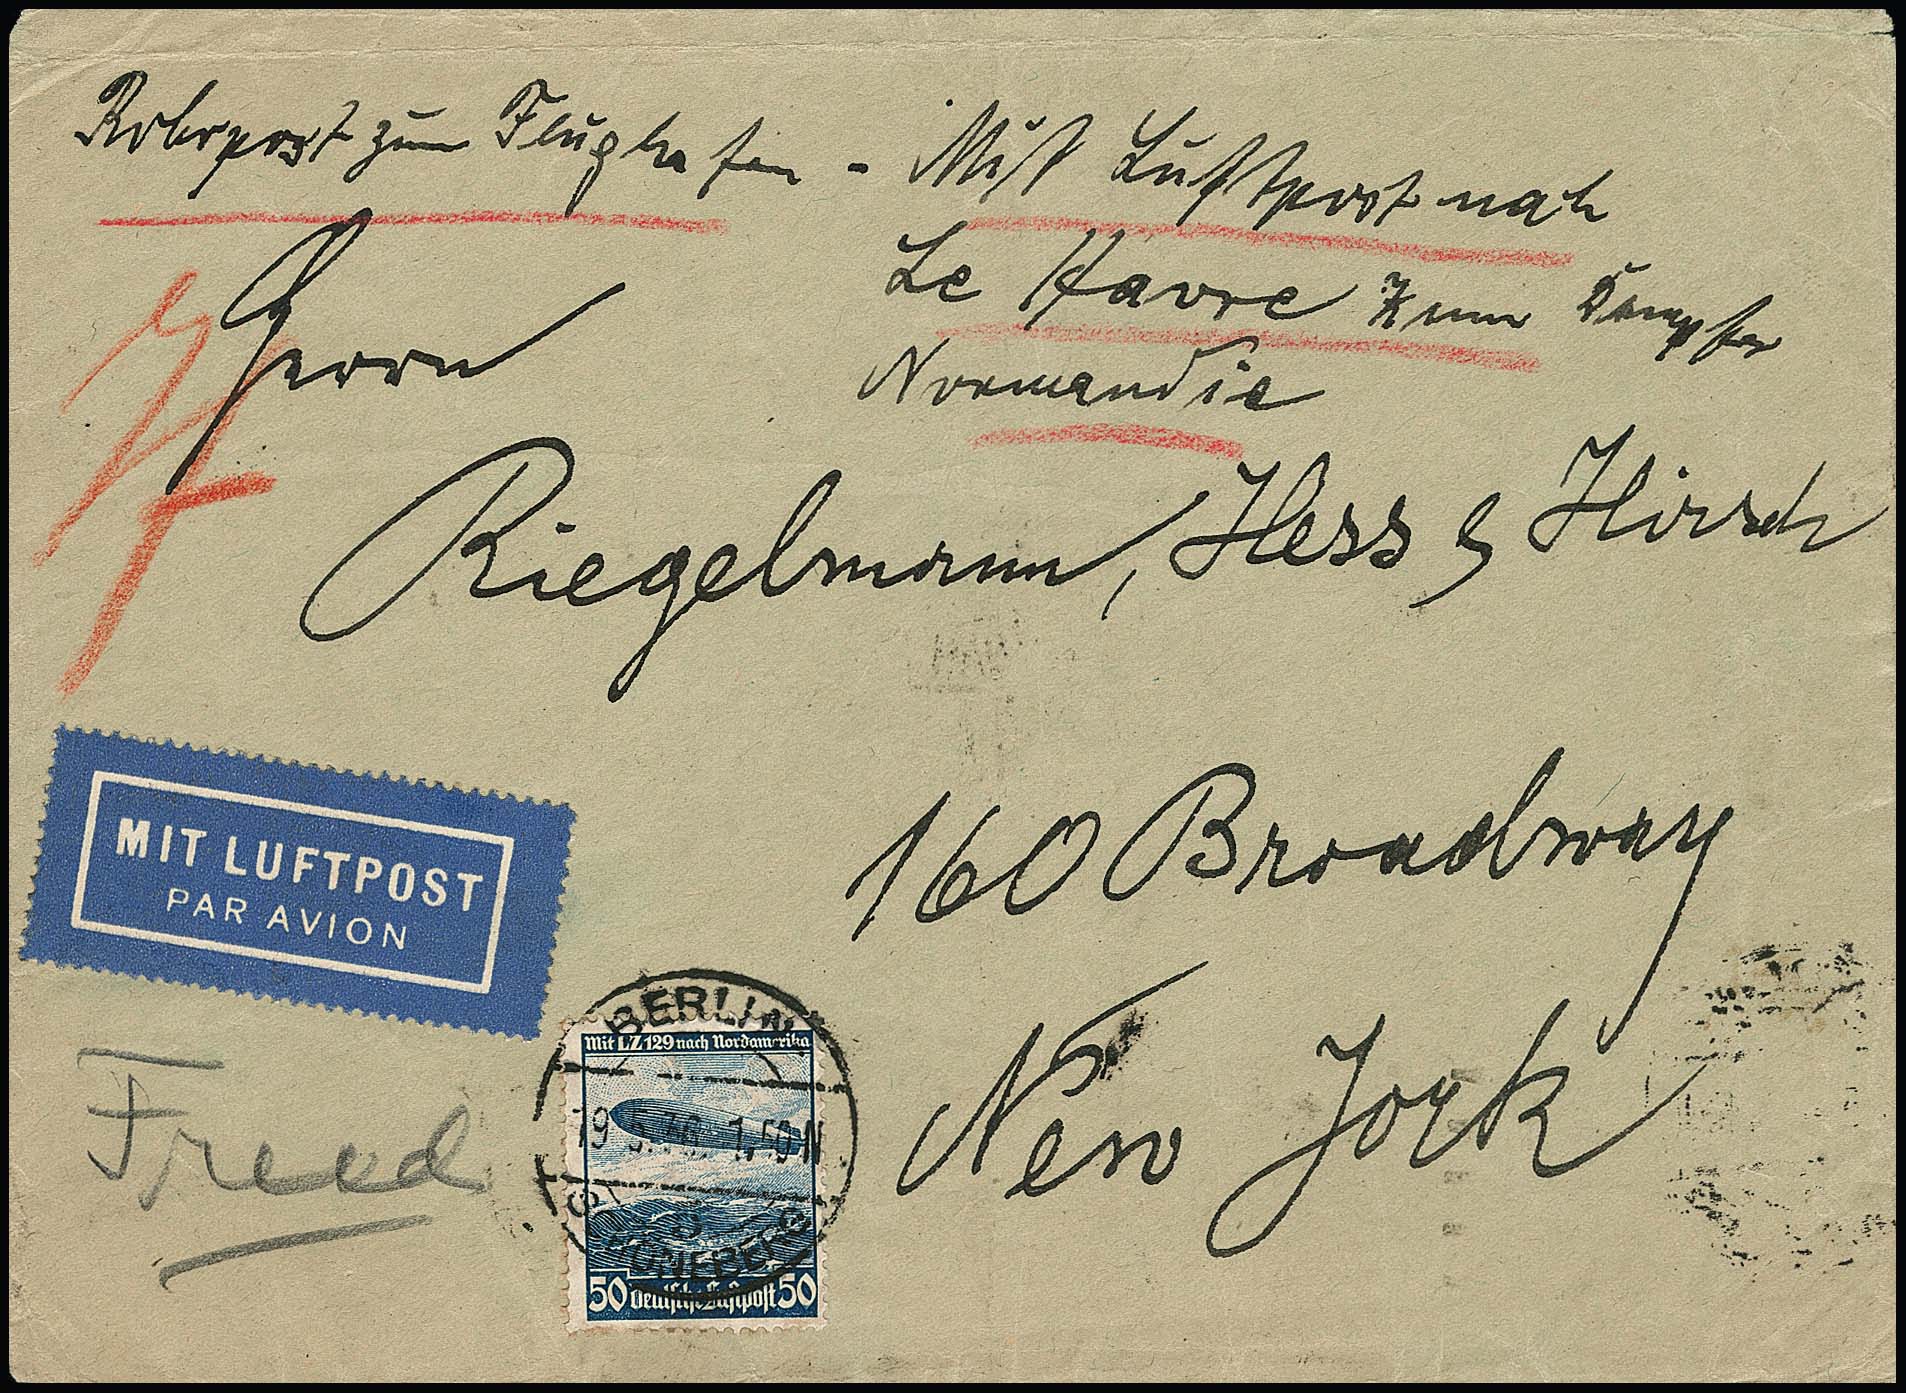 Rohrpost zum Flughafen - Mit Luftpost nach
Le Havre zum Dampfer
Normandie
Herrn
Riegelmann, Hess & Hirsch
160 Broadway
New York
MIT LUFTPOST
PAR AVION
Freed
BERLIN
Mit LZ 129 nach Nordamerika
19.5.36. 1.50 N
SCHÖNEBERG
50 Deutsche Luftpost 50